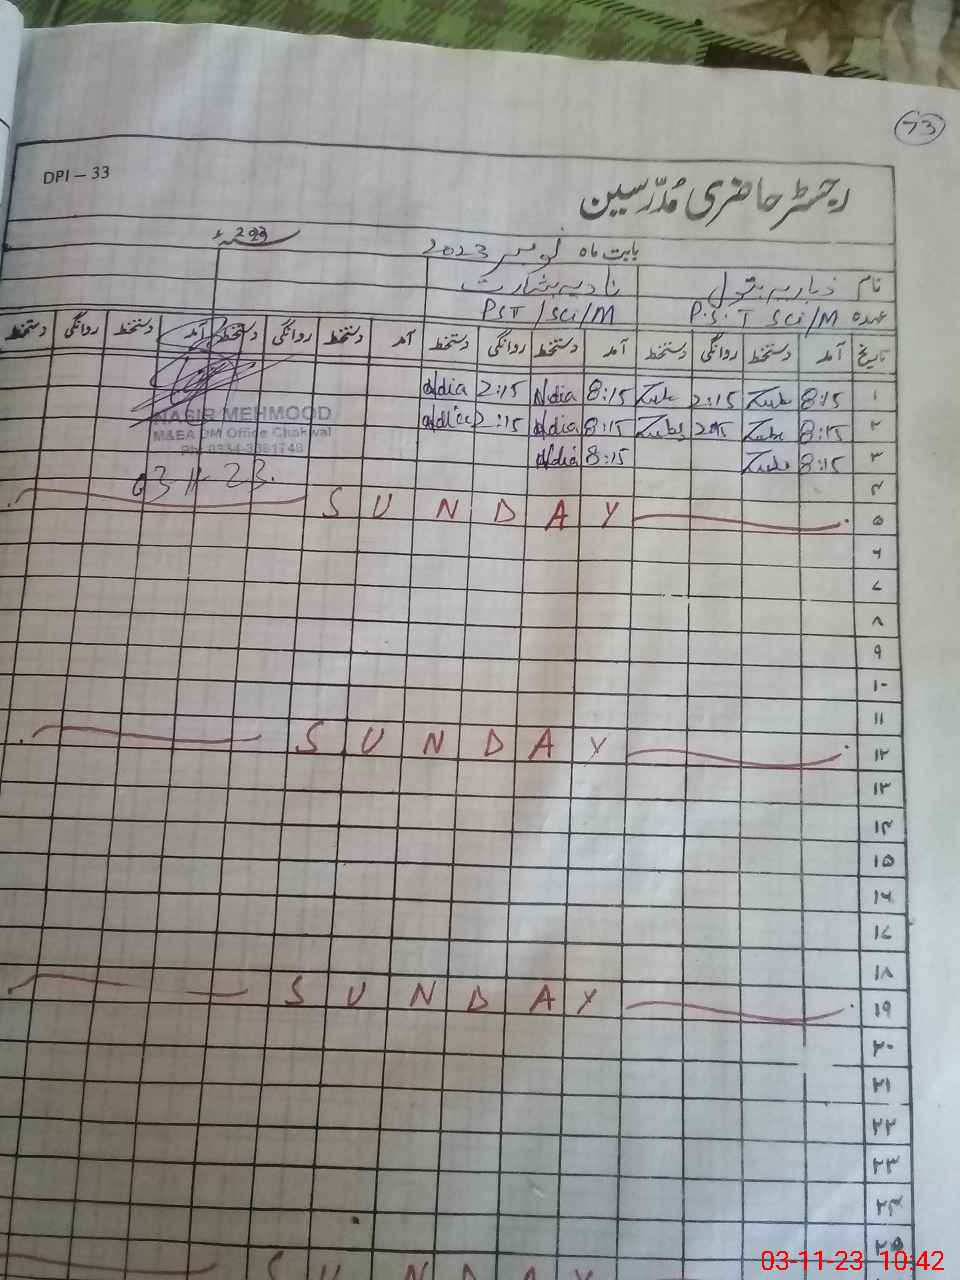 73
DPI – 33
رجسٹر حاضری مُدّرسین
بابت ماہ نومبر 2023
نام بتول نادیہ بشارت
عہدہ P.S.T Sci/M PST/Sci/M
تاریخ آمد دستخط روانگی دستخط آمد دستخط روانگی دستخط آمد دستخط روانگی دستخط آمد دستخط روانگی دستخط
۱ 8:15 2:15 8:15 Nadia 2:15 Nadia
۲ 8:15 2:15 8:15 Nadia 2:15 Nadia
۳ 8:15 8:15 Nadia
NASIR MEHMOOD
M&EA DM Office Chakwal
03-11-23.
۴
۵ SUNDAY
۶
۷
۸
۹
۱۰
۱۱
۱۲ SUNDAY
۱۳
۱۴
۱۵
۱۶
۱۷
۱۸
۱۹ SUNDAY
۲۰
۲۱
۲۲
۲۳
۲۴
۲۵
SUNDAY
03-11-23 10:42